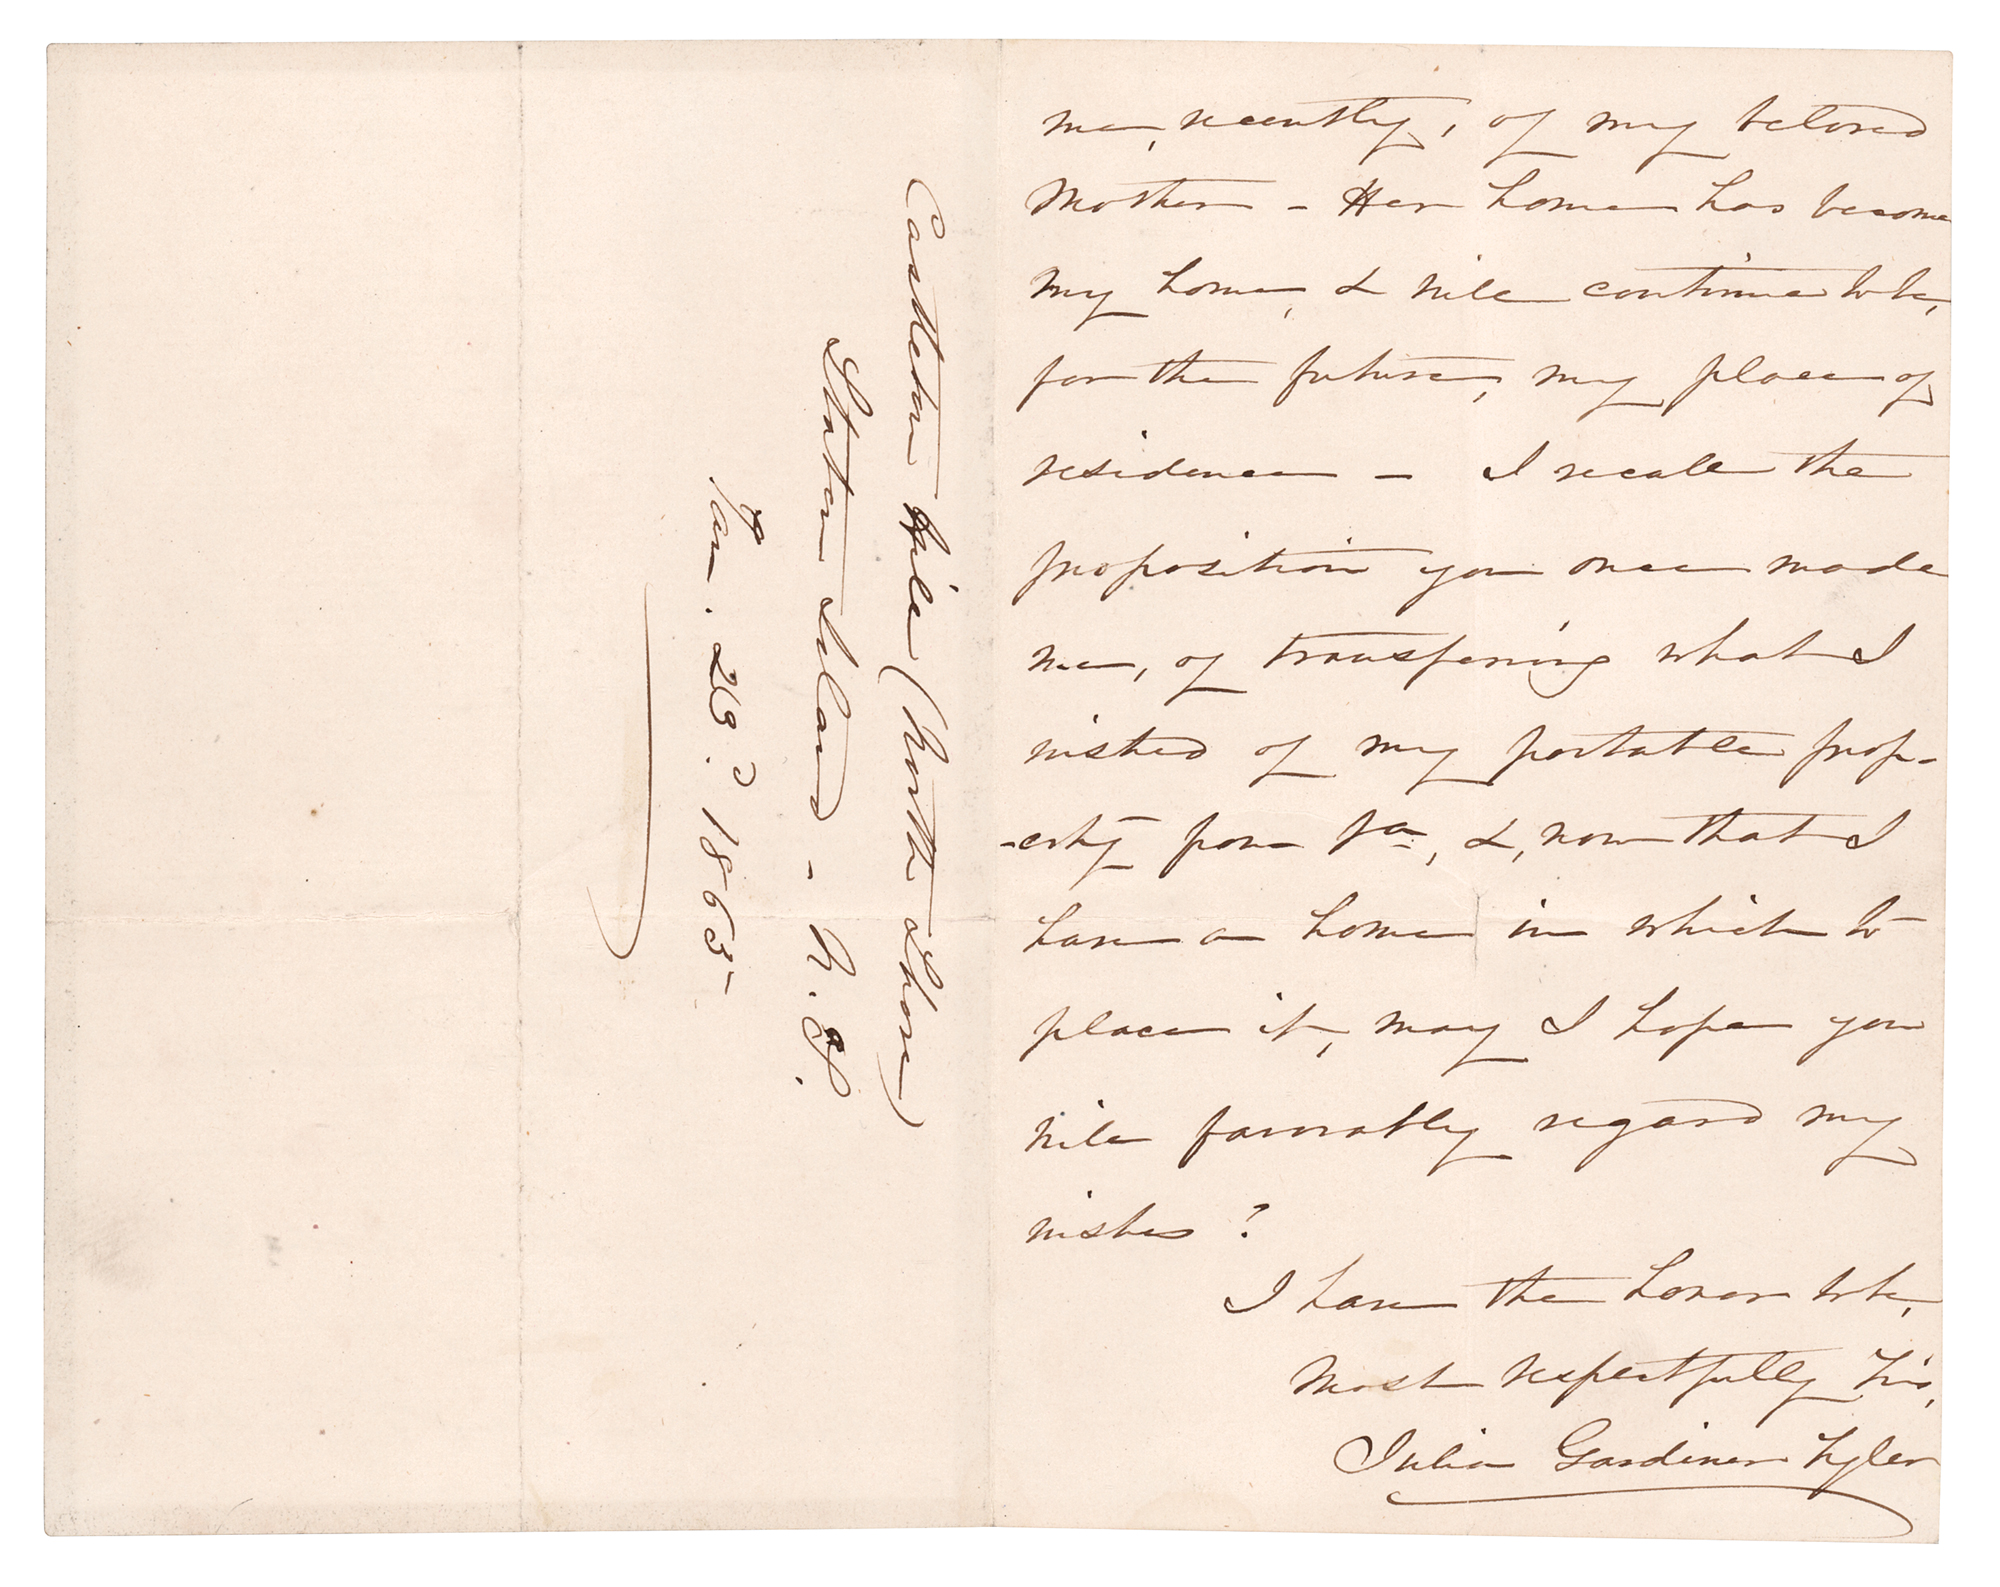 me, recently, of my beloved
Mother – Her home has become
my home, & will continue to be,
for the future, my place of
residence – I recall the
proposition you once made
me, of transfering what I
wished of my portable prop-
-erty from Va, &, now that I
have a home in which to
place it, may I hope you
will favorably regard my
wishes?
I have the honor to be,
Most respectfully Yrs,
Julia Gardiner Tyler
Castleton Hill (North Shore)
Staten Island – N. Y.
Jan. 26. 1865 –